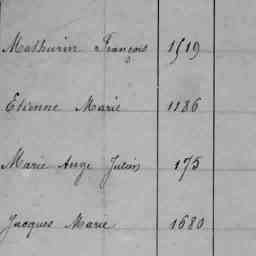 Mathurin François 1519
Etienne Marie 1186
Marie Ange Julien 175
Jacques Marie 1680